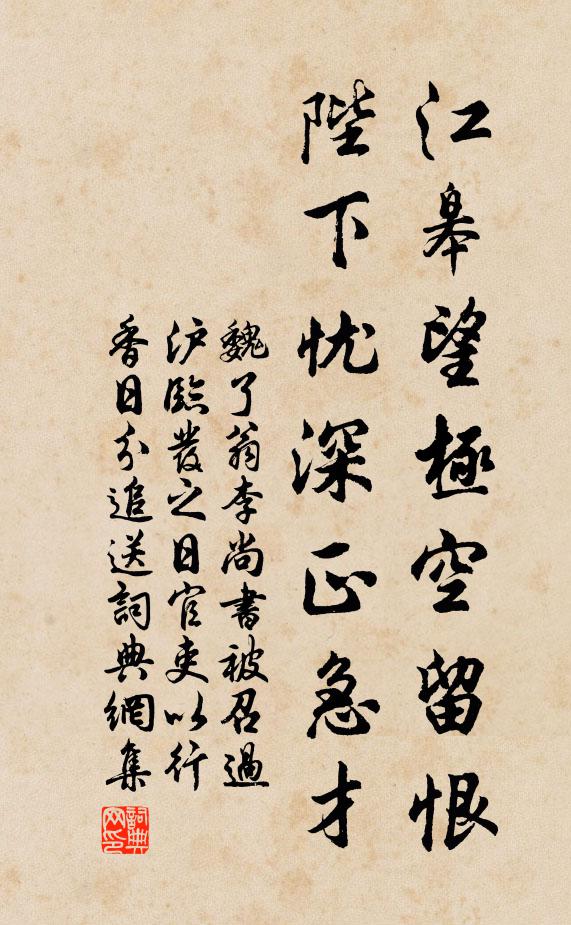 江皋望極空留恨
陛下忧深正急才
魏了翁李尚書被召過
泸臨發之日官吏以行
香日分追送詞典網集
詞典网印